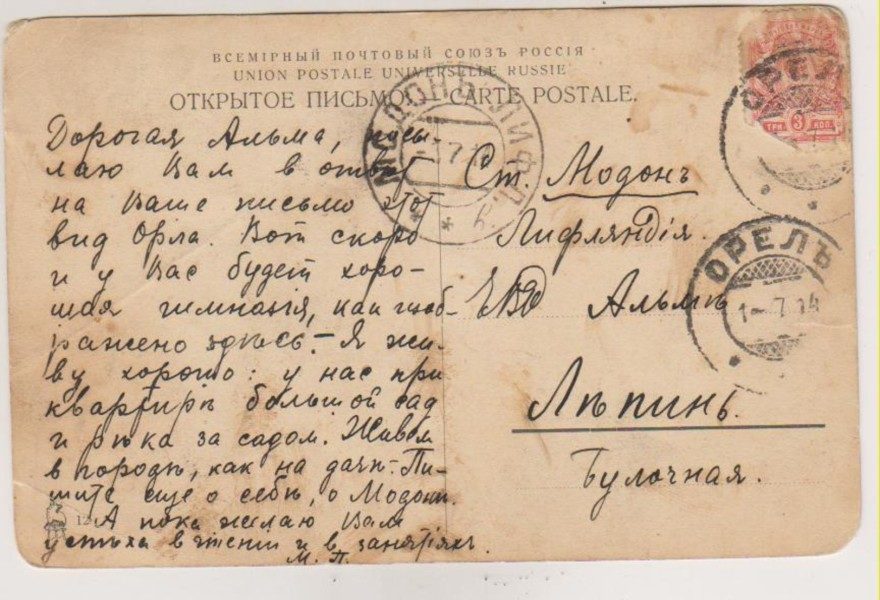 ВСЕМІРНЫЙ ПОЧТОВЫЙ СОЮЗЪ РОССІЯ
UNION POSTALE UNIVERSELLE RUSSIE
ОТКРЫТОЕ ПИСЬМО. CARTE POSTALE.
Дорогая Альма, посы-
лаю Вам в ответ
на Ваше письмо этот
вид Орла. Вот скоро
и у Вас будет хоро-
шая гимназія, как изоб-
ражено здѣсь. — Я жи-
ву хорошо: у нас при
квартирѣ большой сад
и рѣка за садом. Живем
в городѣ, как на дачѣ. Пи-
шите еще о себѣ, о Модонѣ.
А пока желаю Вам
успѣха в ченіи и в занятіяхъ.
М. П.
Ст. Модонъ
Лифляндія.
ЕВБ Альмѣ
Лѣпинь.
Булочная.
ОРЕЛЪ
1-7 14
ОРЕЛ
МОДОНЪ ЛИФ
ТРИ 3 КОП.